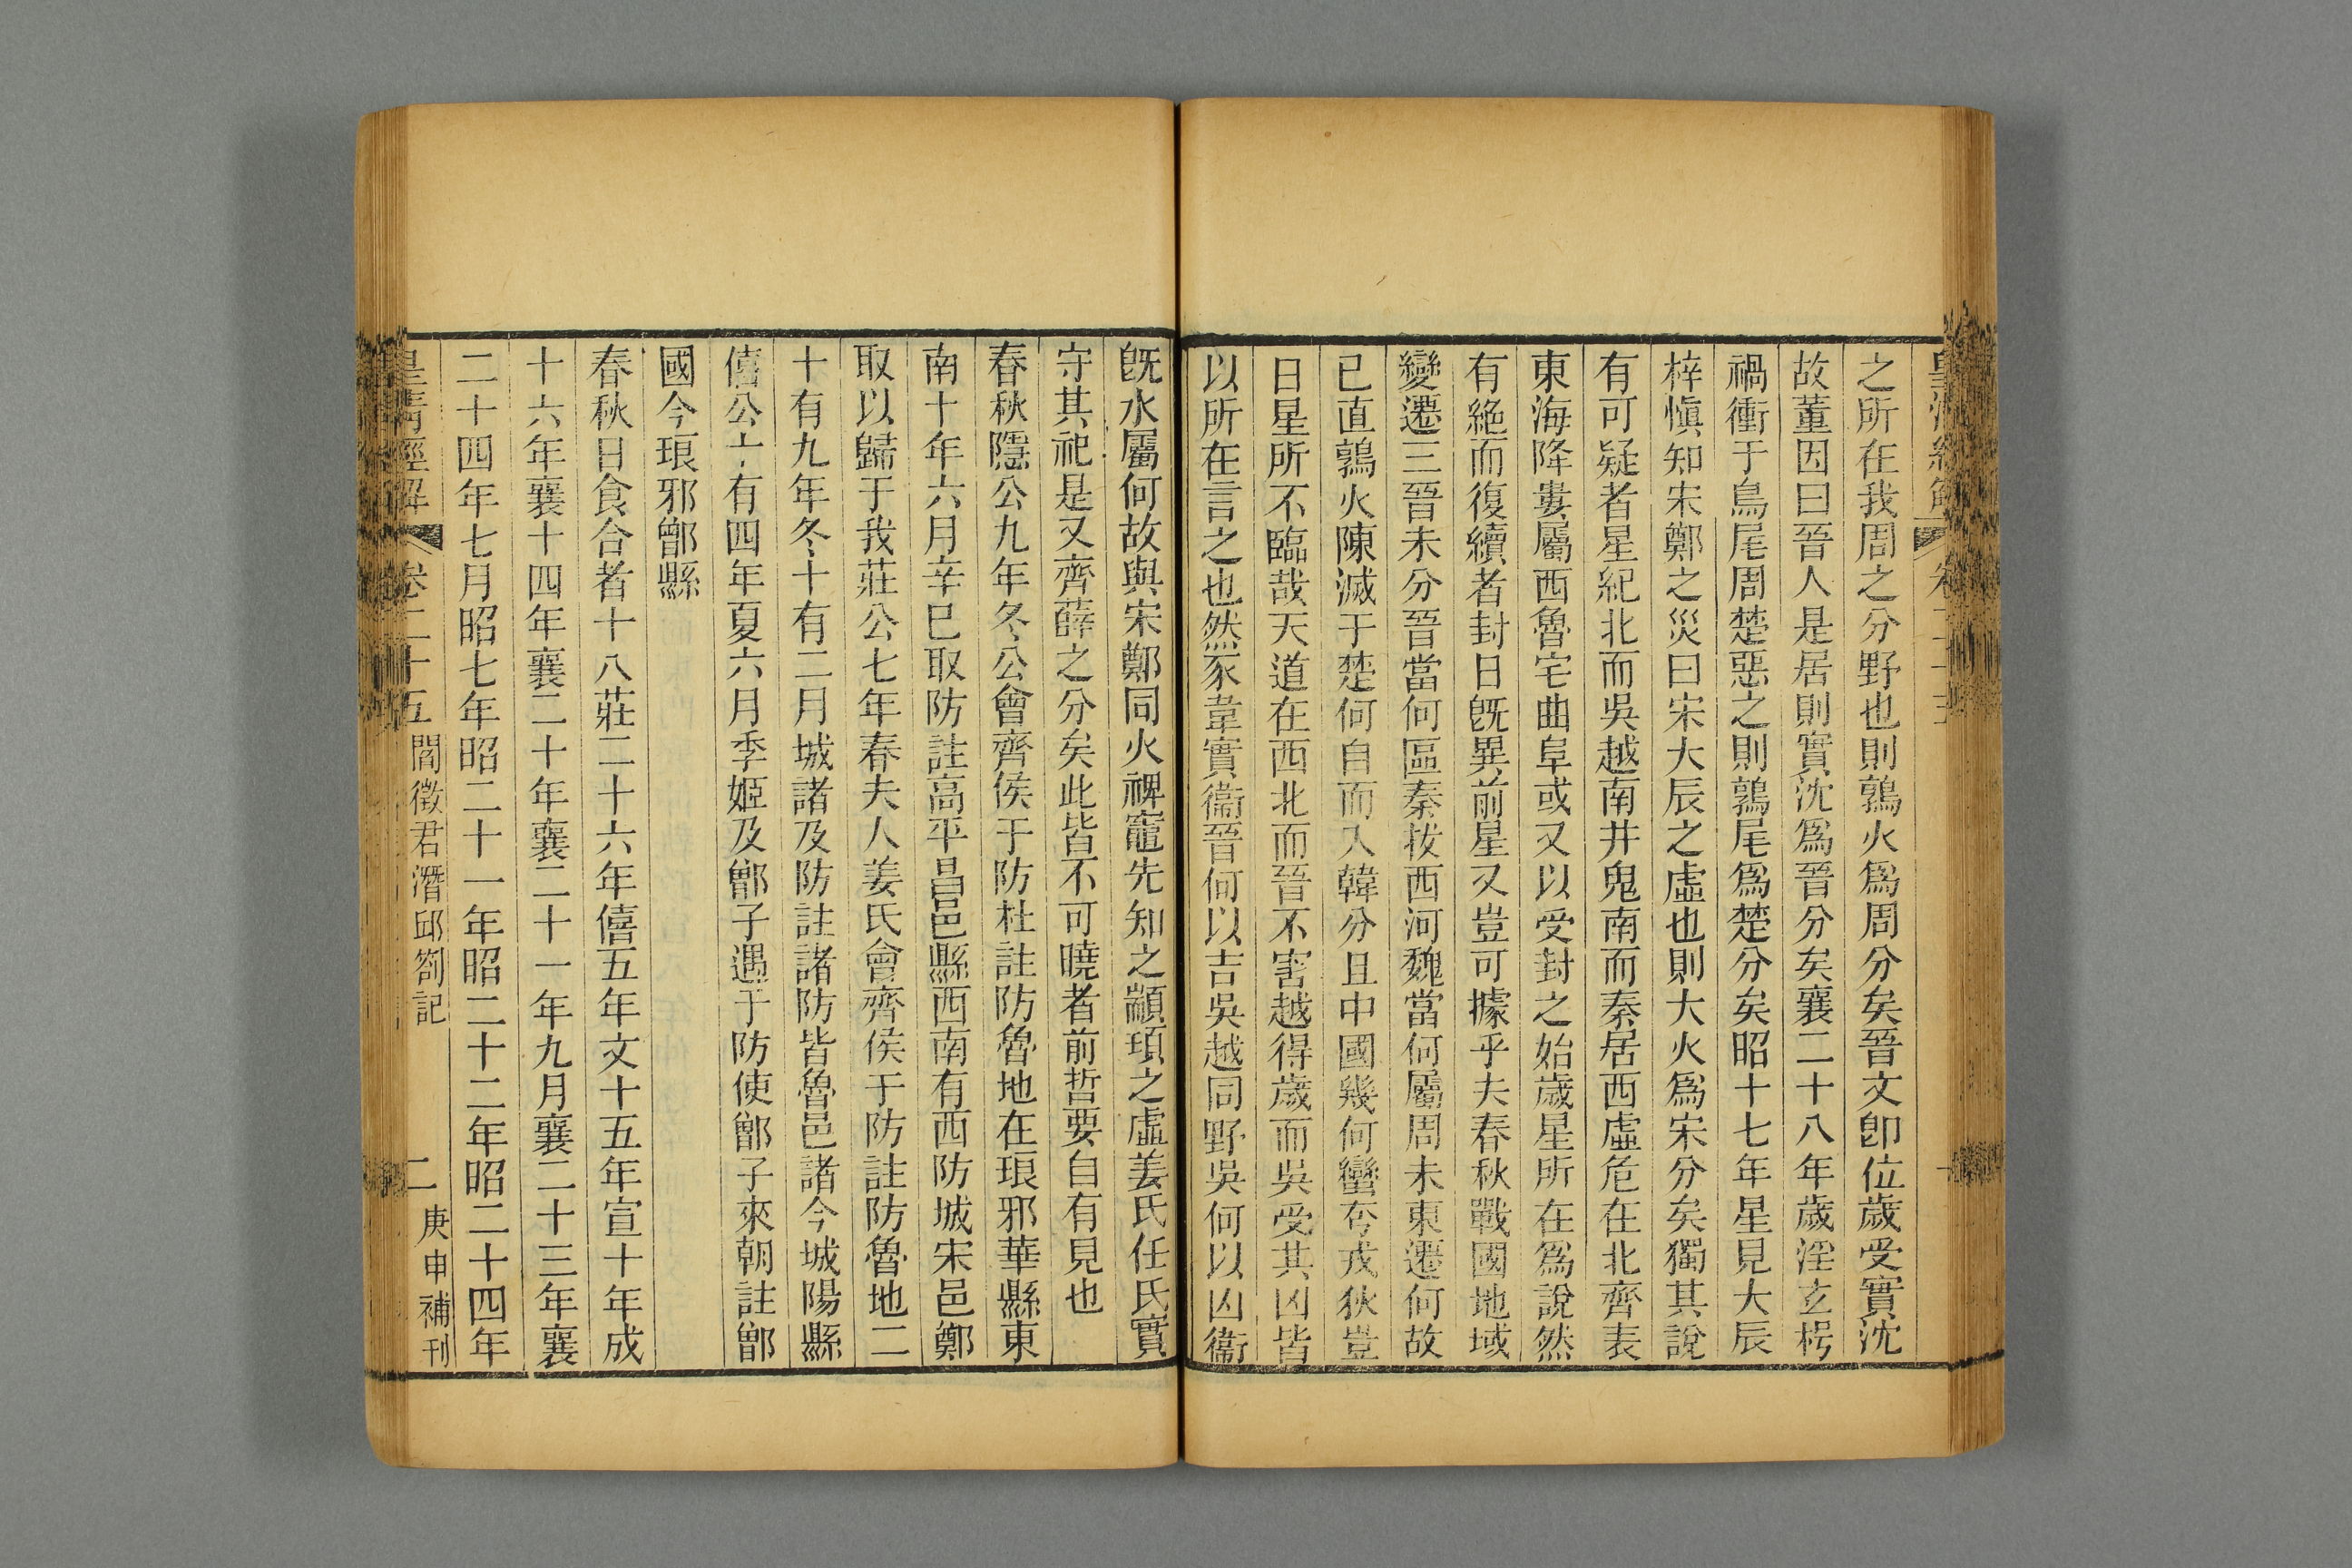 之所在我周之分野也則鶉火爲周分矣晉文卽位歲受實沈
故董因曰晉人是居則實沈爲晉分矣襄二十八年歲淫玄枵
禍衝于鳥尾周楚惡之則鶉尾爲楚分矣昭十七年星見大辰
梓愼知宋鄭之災曰宋大辰之虛也則大火爲宋分矣獨其說
有可疑者星紀北而吳越南井鬼南而秦居西虛危在北齊表
東海降婁屬西魯宅曲阜或又以受封之始歲星所在爲說然
有絶而復續者封日旣異前星又豈可據乎夫春秋戰國地域
變遷三晉未分晉當何區秦拔西河魏當何屬周未東遷何故
已直鶉火陳滅于楚何自而入韓分且中國幾何蠻夸戎狄豈
日星所不臨哉天道在西北而晉不害越得歲而吳受其凶皆
以所在言之也然豕韋實衞晉何以吉吳越同野吳何以凶衞
旣水屬何故與宋鄭同火裨竈先知之顓頊之虛姜氏任氏實
守其祀是又齊薛之分矣此皆不可曉者前哲要自有見也
春秋隱公九年冬公會齊侯于防杜註防魯地在琅邪華縣東
南十年六月辛巳取防註高平昌邑縣西南有西防城宋邑鄭
取以歸于我莊公七年春夫人姜氏會齊侯于防註防魯地二
十有九年冬十有二月城諸及防註諸防皆魯邑諸今城陽縣
僖公十有四年夏六月季姬及鄫子遇于防使鄫子來朝註鄫
國今琅邪鄫縣
春秋日食合者十八莊二十六年僖五年文十五年宣十年成
十六年襄十四年襄二十年襄二十一年九月襄二十三年襄
二十四年七月昭七年昭二十一年昭二十二年昭二十四年
皇淸經解 卷二十五 閻徵君潛邱劄記 二 庚申補刊